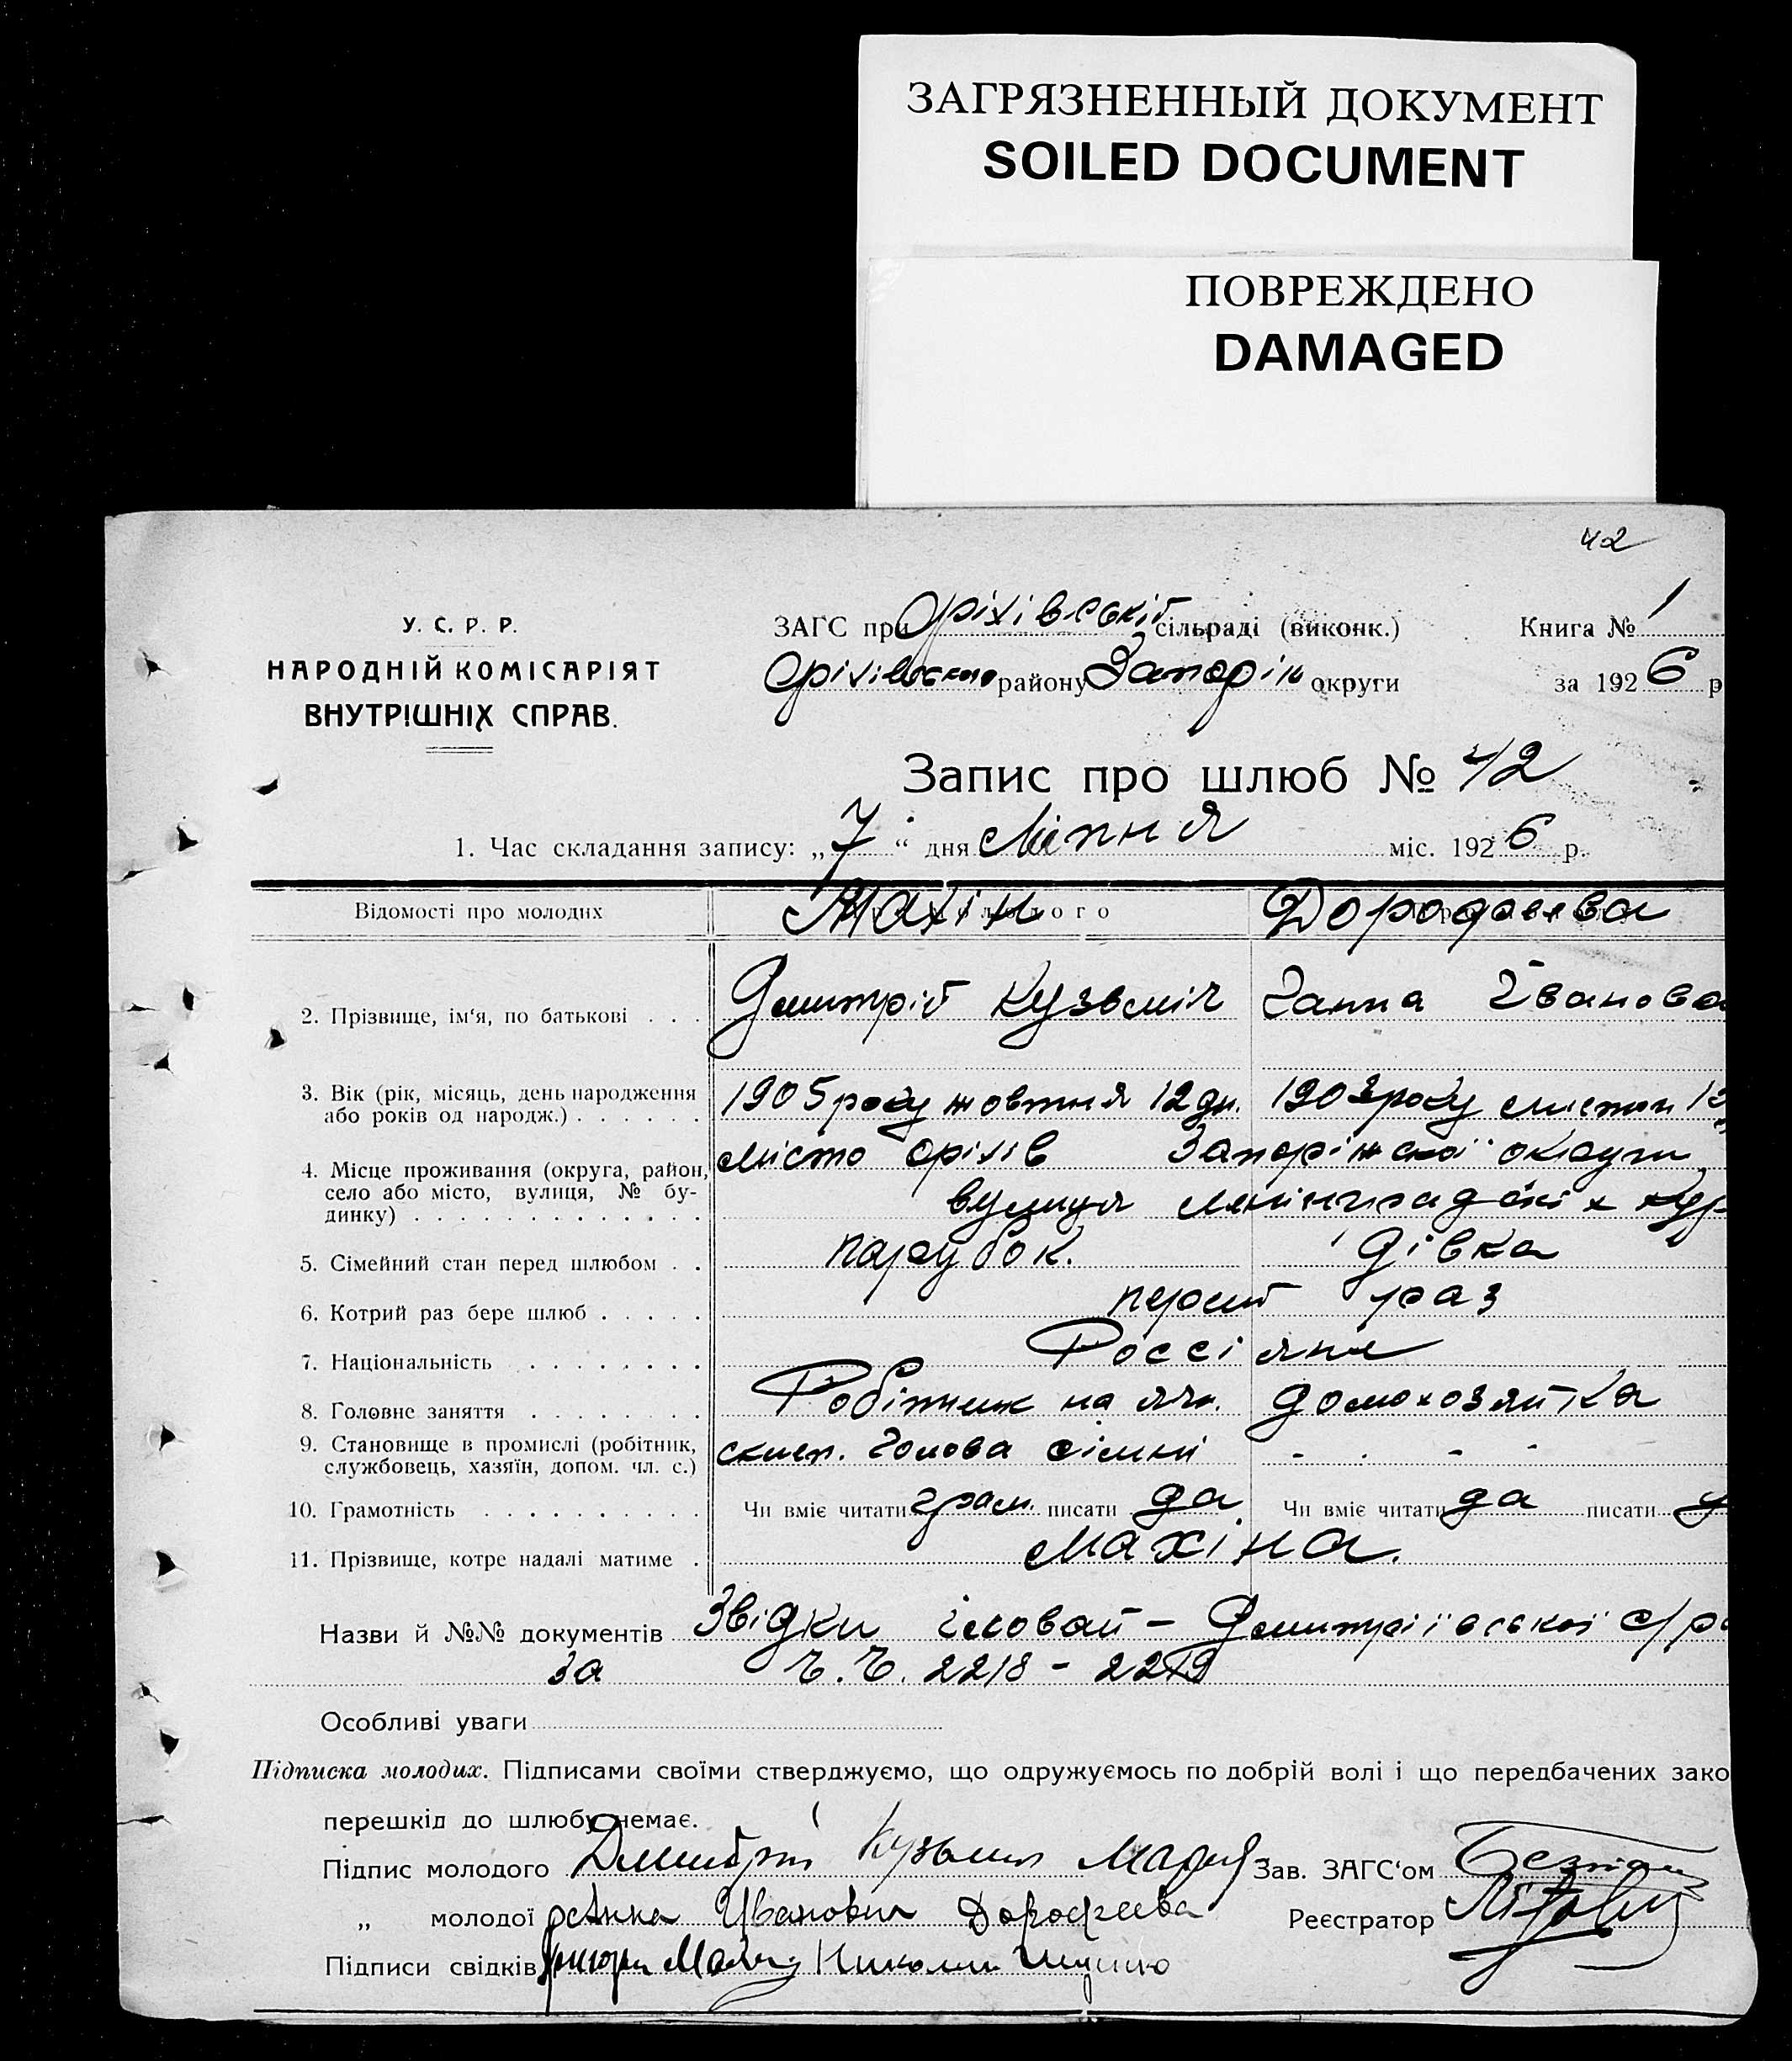 ЗАГРЯЗНЕННЫЙ ДОКУМЕНТ
SOILED DOCUMENT
ПОВРЕЖДЕНО
DAMAGED
42
У. С. Р. Р.
НАРОДНІЙ КОМІСАРІЯТ
ВНУТРІШНІХ СПРАВ.
ЗАГС при Оріхівській сільраді (виконк.) Книга № 1
Оріхівського району Запоріж округи за 1926 р
Запис про шлюб № 42
1. Час складання запису: „7“ дня Липня міс. 1926 р.
Відомості про молодих Махін Дорофеева
2. Прізвище, ім‘я, по батькові . . . Дмитрій Кузьміч Ганна Іванова
3. Вік (рік, місяць, день народження 1905 року жовтня 12 дн. 1903 року листоп
або років од народж.) . . . . . .
4. Місце проживання (округа, район, місто Оріхів Запоріжської округи
село або місто, вулиця, № бу- вулиця
динку) . . . . . . . . . . . . .
5. Сімейний стан перед шлюбом . . парубок. дівка
6. Котрий раз бере шлюб . . . . . перший раз
7. Національність . . . . . . . . Россіяне
8. Головне заняття . . . . . . . . Робітник на домохозяйка
9. Становище в промислі (робітник, голова сімьї - - - -
службовець, хазяїн, допом. чл. с.)
10. Грамотність . . . . . . . . . . Чи вміє читати грам. писати да Чи вміє читати да писати
11. Прізвище, котре надалі матиме . Махіна.
Назви й №№ документів Звідки - Дмитріївської с/р
за 2218 - 2219
Особливі уваги
Підписка молодих. Підписами своїми стверджуємо, що одружуємось по добрій волі і що передбачених зако
перешкід до шлюбу немає.
Підпис молодого Дмитрий Кузьмич Зав. ЗАГС‘ом
„ молодої Анна Ивановна Дорофеева Реєстратор
Підписи свідків Николай